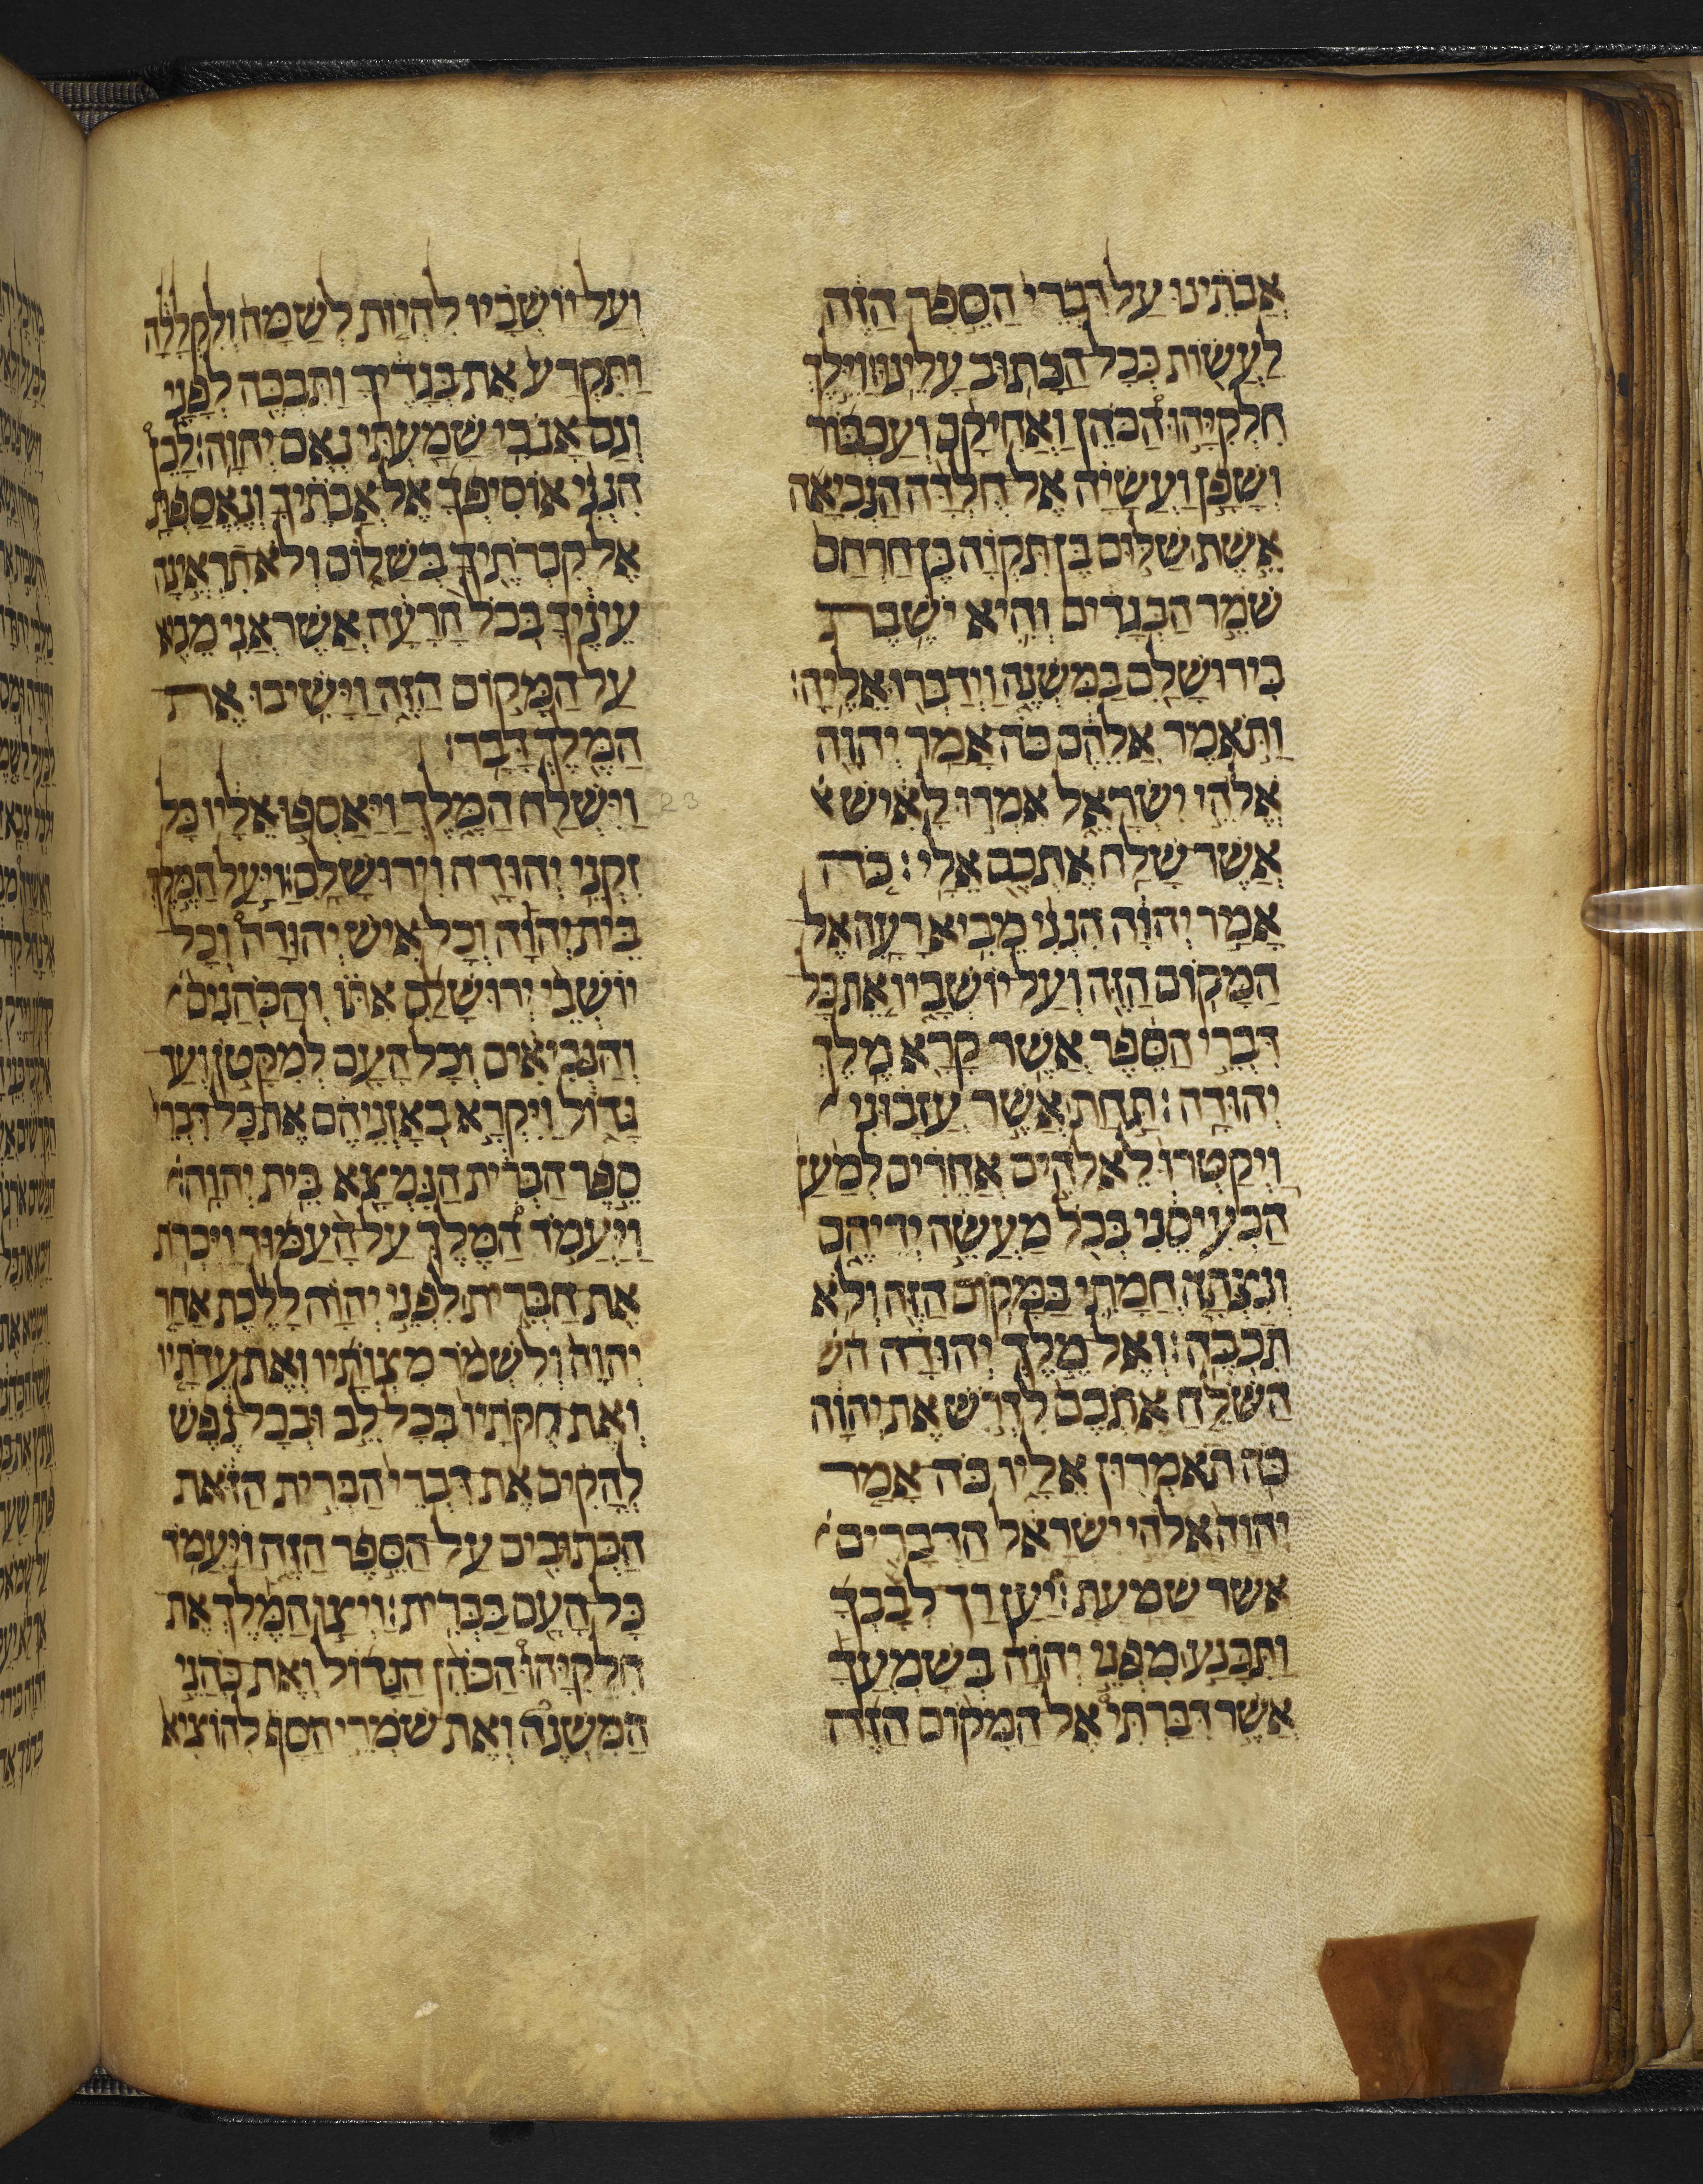 אֲבֹתֵינוּ עַל דִּבְרֵי הַסֵּפֶר הַזֶּה
לַעֲשׂוֹת כְּכָל הַכָּתוּב עָלֵינוּ׃ וַיֵּלֶךְ
חִלְקִיָּהוּ הַכֹּהֵן וַאֲחִיקָם וְעַכְבּוֹר
וְשָׁפָן וַעֲשָׂיָה אֶל חֻלְדָּה הַנְּבִיאָה
אֵשֶׁת שַׁלּוּם בֶּן תִּקְוָה בֶּן חַרְחַס
שֹׁמֵר הַבְּגָדִים וְהִיא יֹשֶׁבֶת
בִּירוּשָׁלִַם בַּמִּשְׁנֶה וַיְדַבְּרוּ אֵלֶיהָ׃
וַתֹּאמֶר אֲלֵהֶם כֹּה אָמַר יְהוָה
אֱלֹהֵי יִשְׂרָאֵל אִמְרוּ לָאִישׁ
אֲשֶׁר שָׁלַח אֶתְכֶם אֵלָי׃ כֹּה
אָמַר יְהוָה הִנְנִי מֵבִיא רָעָה אֶל
הַמָּקוֹם הַזֶּה וְעַל יוֹשְׁבָיו אֵת כָּל
דִּבְרֵי הַסֵּפֶר אֲשֶׁר קָרָא מֶלֶךְ
יְהוּדָה׃ תַּחַת אֲשֶׁר עֲזָבוּנִי
וַיְקַטְּרוּ לֵאלֹהִים אֲחֵרִים לְמַעַן
הַכְעִיסֵנִי בְּכֹל מַעֲשֵׂה יְדֵיהֶם
וְנִצְּתָה חֲמָתִי בַּמָּקוֹם הַזֶּה וְלֹא
תִכְבֶּה׃ וְאֶל מֶלֶךְ יְהוּדָה הש
הַשֹּׁלֵחַ אֶתְכֶם לִדְרֹשׁ אֶת יְהוָה
כֹּה תֹאמְרוּן אֵלָיו כֹּה אָמַר
יְהוָה אֱלֹהֵי יִשְׂרָאֵל הַדְּבָרִים
אֲשֶׁר שָׁמָעְתָּ׃ יַעַן רַךְ לְבָבְךָ
וַתִּכָּנַע מִפְּנֵי יְהוָה בְּשָׁמְעֲךָ
אֲשֶׁר דִּבַּרְתִּי אֶל הַמָּקוֹם הַזֶּה
וְעַל יוֹשְׁבָיו לִהְיוֹת לְשַׁמָּה וְלִקְלָלָה
וַתִּקְרַע אֶת בְּגָדֶיךָ וַתִּבְכֶּה לְפָנָי
וְגַם אָנֹכִי שָׁמַעְתִּי נְאֻם יְהוָה׃ לָכֵן
הִנְנִי אוֹסִיפְךָ אֶל אֲבֹתֶיךָ וְנֶאֱסַפְתָּ
אֶל קִבְרֹתֶיךָ בְּשָׁלוֹם וְלֹא תִרְאֶינָה
עֵינֶיךָ בְּכֹל הָרָעָה אֲשֶׁר אֲנִי מֵבִיא
עַל הַמָּקוֹם הַזֶּה וַיָּשִׁיבוּ אֶת
הַמֶּלֶךְ דָּבָר׃
23
וַיִּשְׁלַח הַמֶּלֶךְ וַיַּאַסְפוּ אֵלָיו כָּל
זִקְנֵי יְהוּדָה וִירוּשָׁלִָם׃ וַיַּעַל הַמֶּלֶךְ
בֵּית יְהוָה וְכָל אִישׁ יְהוּדָה וְכָל
יוֹשְׁבֵי יְרוּשָׁלִַם אִתּוֹ וְהַכֹּהֲנִים
וְהַנְּבִיאִים וְכָל הָעָם לְמִקָּטֹן וְעַד
גָּדוֹל וַיִּקְרָא בְאָזְנֵיהֶם אֶת כָּל דִּבְרֵי
סֵפֶר הַבְּרִית הַנִּמְצָא בֵּית יְהוָה׃
וַיַּעֲמֹד הַמֶּלֶךְ עַל הָעַמּוּד וַיִּכְרֹת
אֶת הַבְּרִית לִפְנֵי יְהוָה לָלֶכֶת אַחַר
יְהוָה וְלִשְׁמֹר מִצְוֹתָיו וְאֶת עֵדְוֹתָיו
וְאֶת חֻקֹּתָיו בְּכָל לֵב וּבְכָל נֶפֶשׁ
לְהָקִים אֶת דִּבְרֵי הַבְּרִית הַזֹּאת
הַכְּתוּבִים עַל הַסֵּפֶר הַזֶּה וַיַּעֲמֹד
כָּל הָעָם בַּבְּרִית׃ וַיְצַו הַמֶּלֶךְ אֶת
חִלְקִיָּהוּ הַכֹּהֵן הַגָּדוֹל וְאֶת כֹּהֲנֵי
הַמִּשְׁנֶה וְאֶת שֹׁמְרֵי הַסַּף לְהוֹצִיא